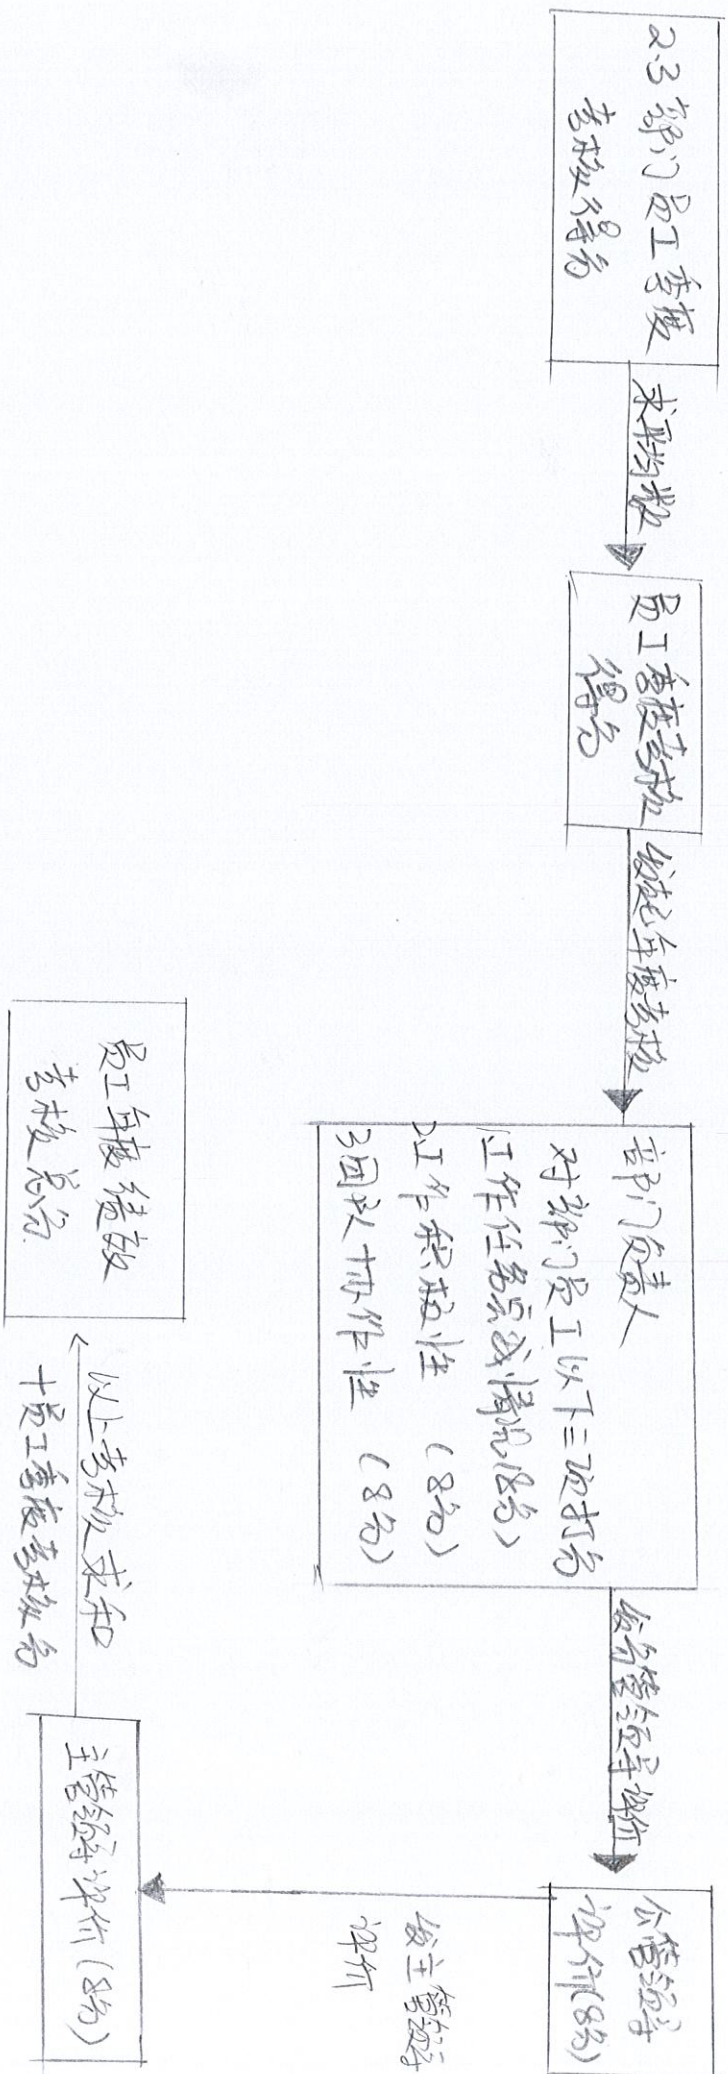 2.3 部门员工季度
考核得分
求平均数
员工季度考核
得分
发起年度考核
部门负责人
对部门员工以下三项打分
1工作任务完成情况(8分)
2工作积极性 (8分)
3团队协作性 (8分)
发分管领导评价
分管领导
评价(8分)
发主管领导
评价
主管领导评价(8分)
以上考核求和
+员工季度考核分
员工年度绩效
考核总分